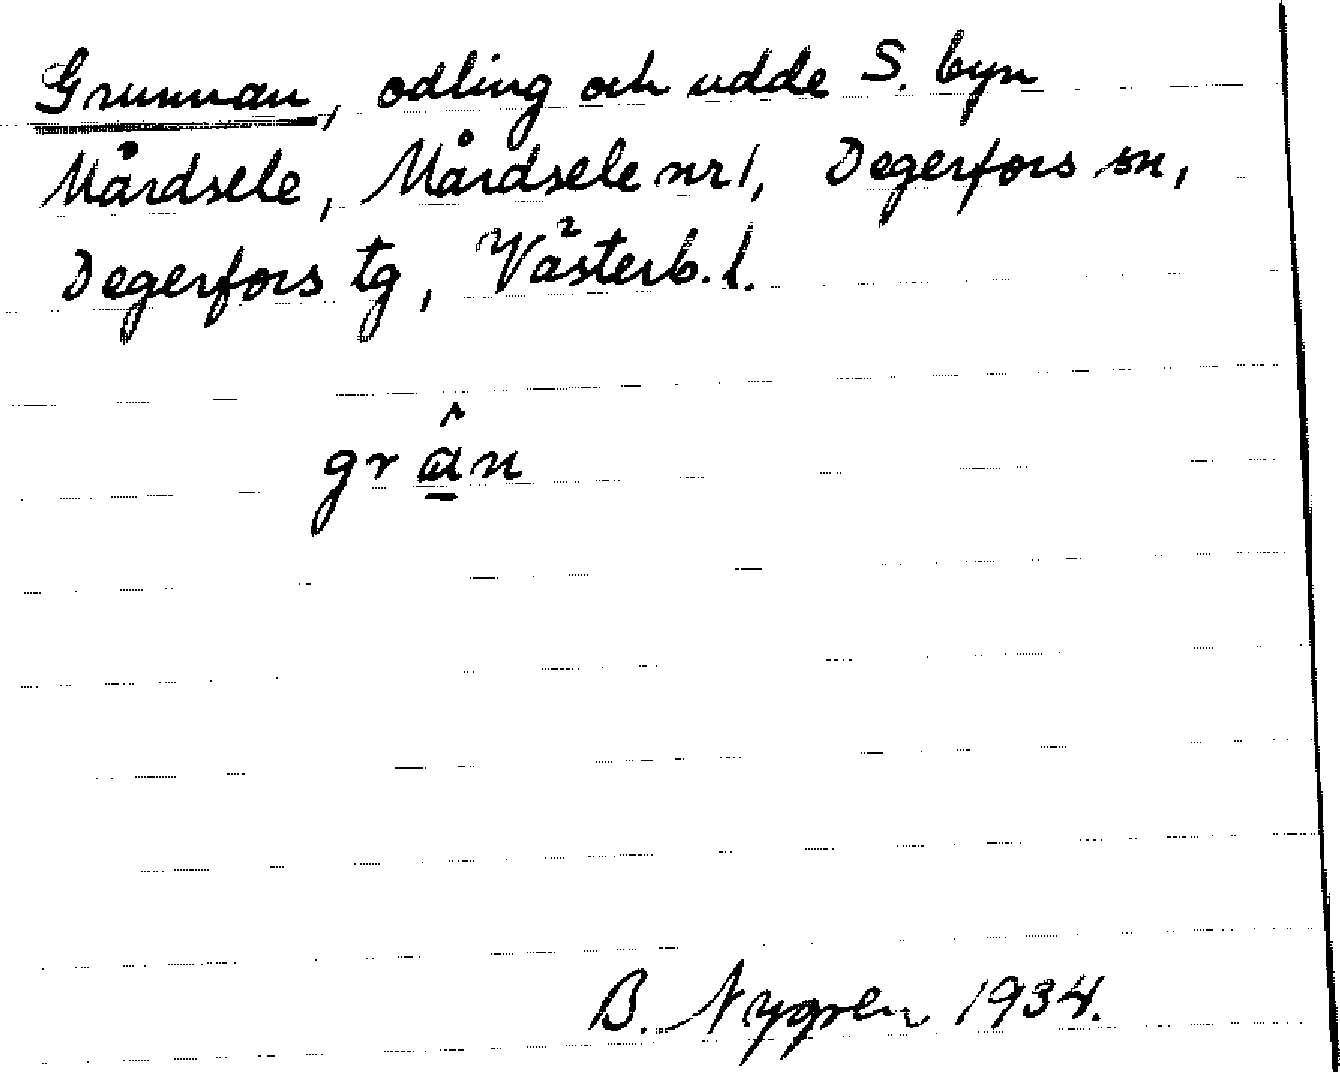 Grunnan, odling och udde S. byn
Mårdsele, Mårdsele nr 1, Degerfors sn,
Degerfors tg, Västerb. l.
B. Nygren 1934.